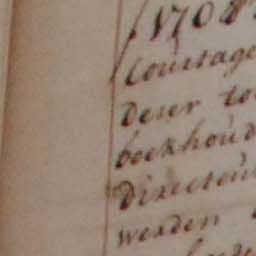 1708
Courtage
deser
boekhoud
Directeu
werden